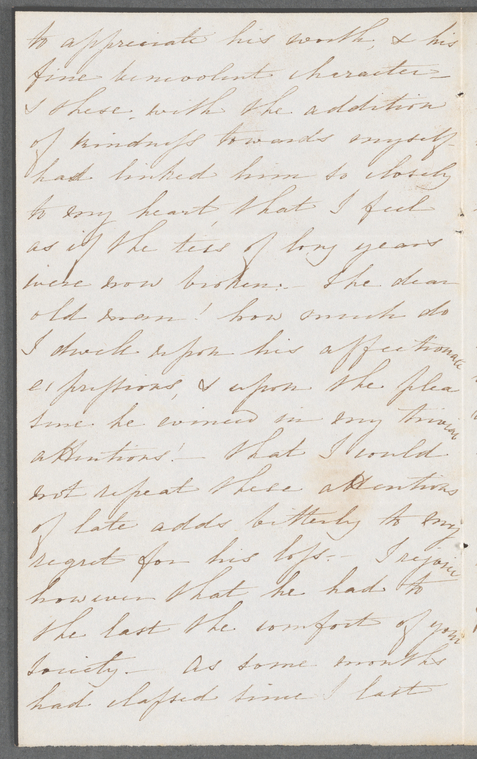 to appreciate his worth, & his
fine benevolent character –
& these, with the addition
of kindness towards myself –
had linked him so closely
to my heart, that I feel
as if the ties of long years
were now broken. – The dear
old man! how much do
I dwell upon his affectionate
expressions, & upon the plea
sure he evinced in my trivial
attentions! – That I could
not repeat these attentions
of late adds bitterly to my
regret for his loss. – I rejoice
however that he had to
the last the comfort of your
society. – As some months
had elapsed since I last